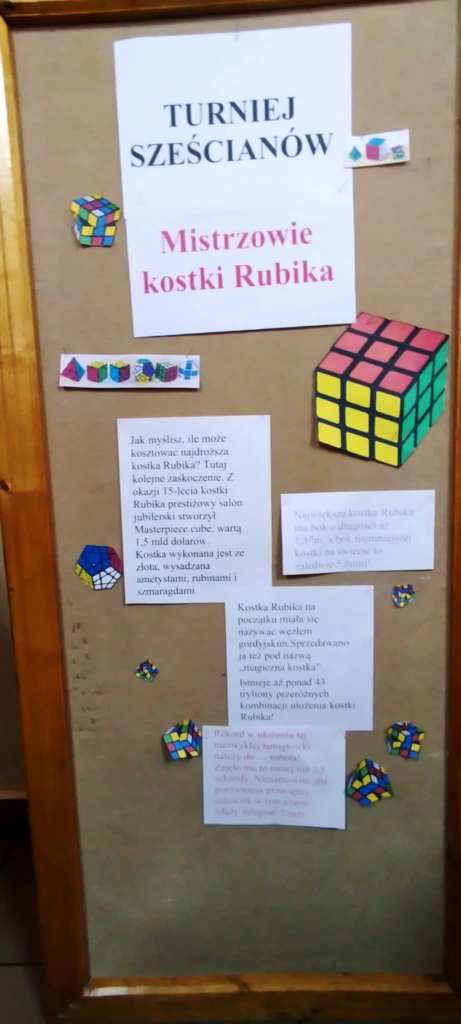 TURNIEJ
SZEŚCIANÓW
Mistrzowie
kostki Rubika
Jak myślisz, ile może
kosztować najdroższa
kostka Rubika? Tutaj
kolejne zaskoczenie. Z
okazji 15-lecia kostki
Rubika prestiżowy salon
jubilerski stworzył
Masterpiece cube, wartą
1,5 mld dolarów.
Kostka wykonana jest ze
złota, wysadzana
ametystami, rubinami i
szmaragdami.
Największa kostka Rubika
ma bok o długości aż
1,57m, a bok najmniejszej
kostki na świecie to
zaledwie 5,6mm!
Kostka Rubika na
początku miała się
nazywać węzłem
gordyjskim.Sprzedawano
ją też pod nazwą
„magiczna kostka”.
Istnieje aż ponad 43
tryliony przeróżnych
kombinacji ułożenia kostki
Rubika!
Rekord w ułożeniu tej
niezwykłej łamigłówki
należy do ... robota!
Zajęło mu to mniej niż 0,5
sekundy. Niesamowite, dla
porównania przeciętny
człowiek w tym czasie
zdąży mrugnąć